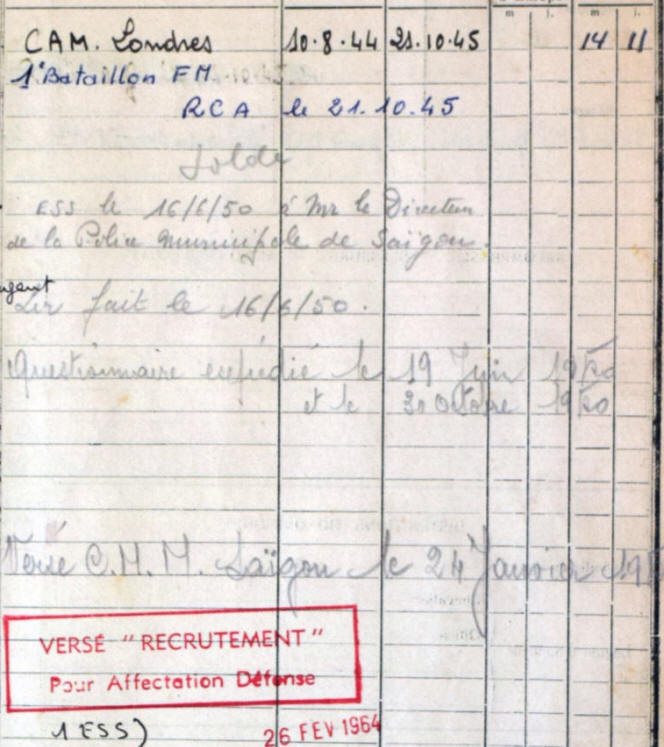 m. j. m. j.
CAM. Londres 10.8.44 21.10.45 14 11
1° Bataillon FM.
RCA le 21.10.45
Solde
ESS le 16/6/50 à Mr le Directeur
de la Police Municipale de Saïgon.
fait le 16/6/50.
Questionnaire expédié le 19 Juin 1950
et le 30 Octobre 1950
Versé C.M.M. Saïgon le 24 Janvier
VERSÉ " RECRUTEMENT "
Pour Affectation Défense
1 ESS)
26 FEV 1964